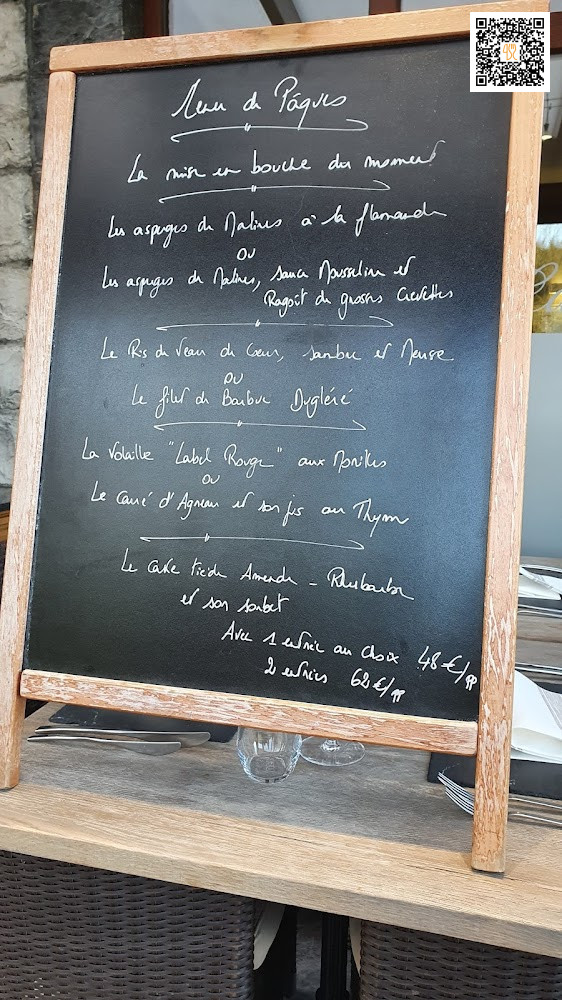 Menu de Pâques
La mise en bouche du moment
Les asperges de Malines à la flamande
OU
Les asperges de Malines, sauce Mousseline et
Ragoût de grosses Crevettes
Le Ris de Veau de Coeur, et Meuse
OU
Le filet de Barbue Dugléré
La Volaille "Label Rouge" aux Morilles
OU
Le Carré d'Agneau et son jus au Thym
Le Cake tiède Amande - Rhubarbe
et son sorbet
Avec 1 entrée au choix 48€/pp
2 entrées 62€/pp